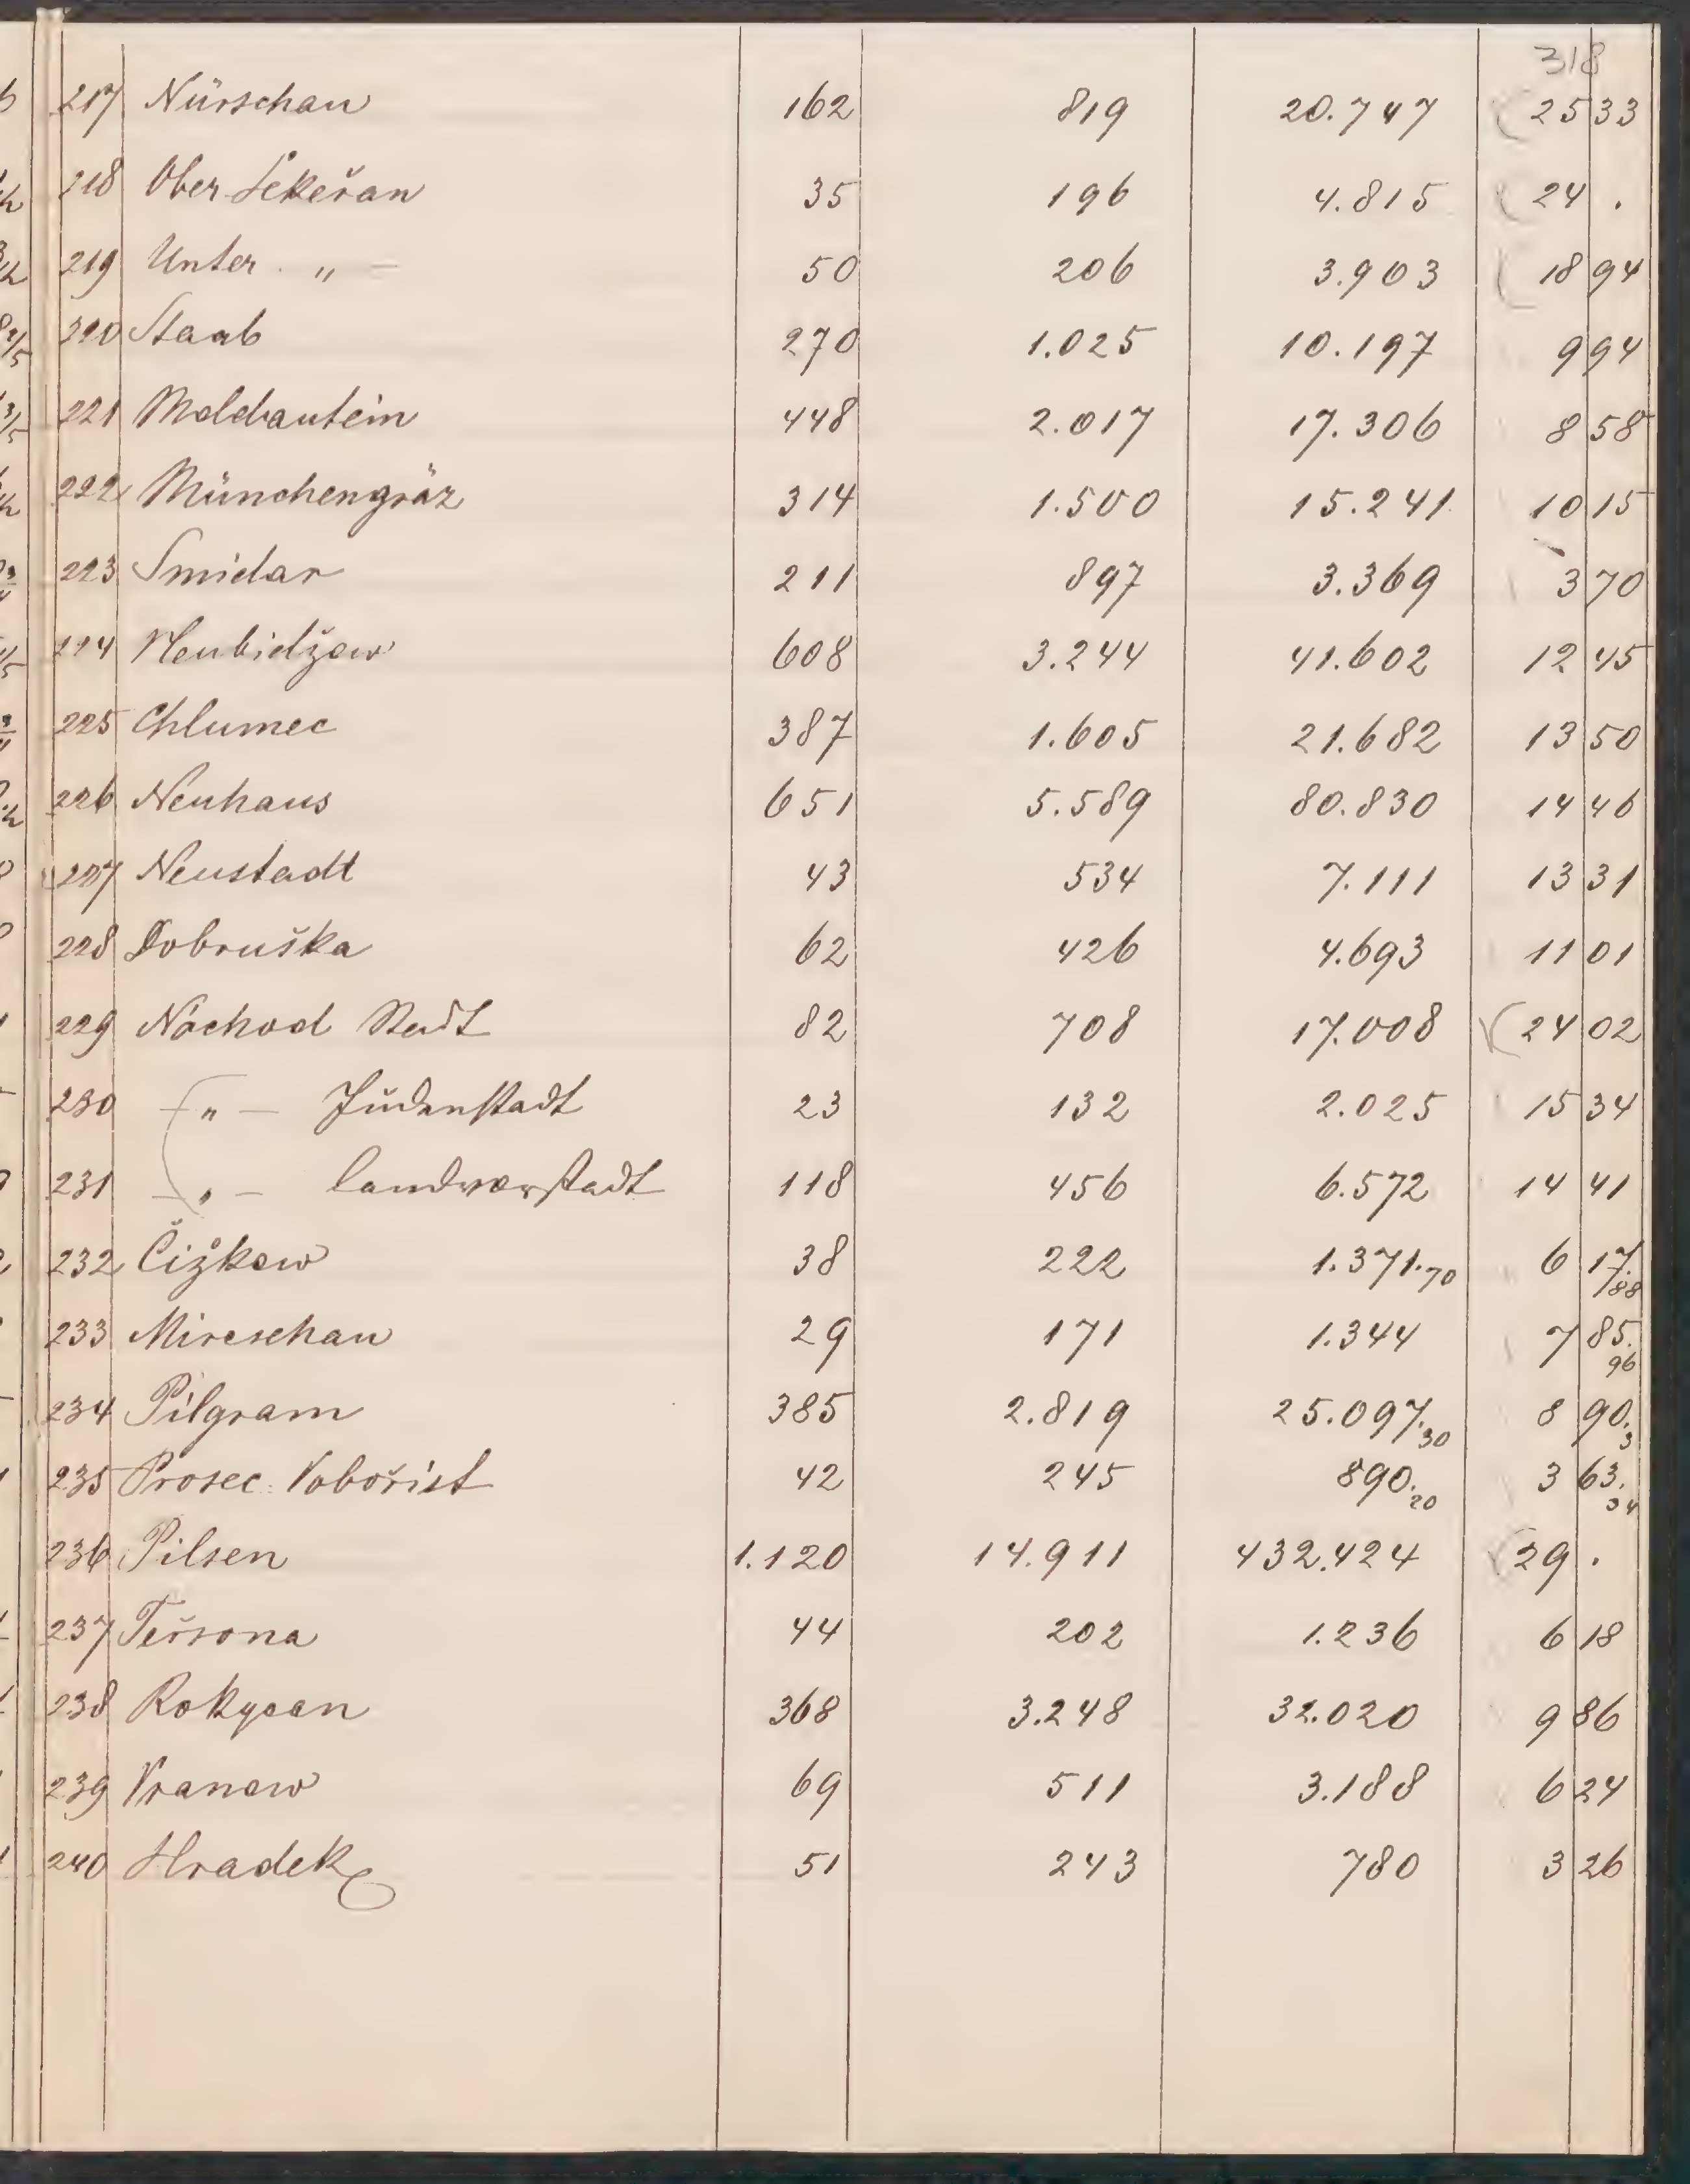 318
217 Nürschan 162 819 20.747 25 33
218 Ober-Sekeřan 35 196 4.815 24 .
219 Unter „ — 50 206 3.903 18 94
220 Staab 270 1.025 10.197 9 94
221 Moldautein 448 2.017 17.306 8 58
222 Münchengräz 314 1.500 15.241 10 15
223 Smidar 211 897 3.369 3 70
224 Neubidžow 608 3.244 41.602 12 45
225 Chlumec 387 1.605 21.682 13 50
226 Neuhaus 651 5.589 80.830 14 46
227 Neustadt 43 534 7.111 13 31
228 Dobruška 62 426 4.693 11 01
229 Nachod Stadt 82 708 17.008 24 02
230 — „ — Judenstadt 23 132 2.025 15 34
231 — „ — Landvorstadt 118 456 6.572 14 41
232 Čižkow 38 222 1.371.70 6 17.88
233 Mireschau 29 171 1.344 7 85.96
234 Pilgram 385 2.819 25.097.30 8 90.3
235 Prosec. Vobořist 42 245 890.20 3 63.34
236 Pilsen 1.120 14.911 432.424 29 .
237 Teřsona 44 202 1.236 6 18
238 Rokycan 368 3.248 32.020 9 86
239 Vranow 69 511 3.188 6 24
240 Hradek 51 243 780 3 26